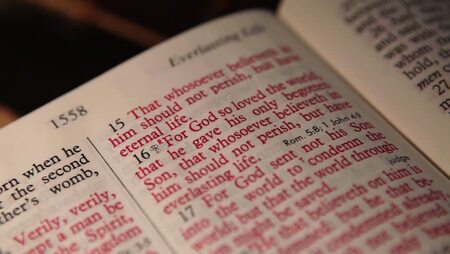 Everlasting Life
1558
orn when he
the second
ther's womb,
Verily, verily,
cept a man be
the Spirit,
kingdom
15 That whosoever believeth in
him should not perish, but have
eternal life.
16 For God so loved the world,
that he gave his only begotten
Son, that whosoever believeth in
him should not perish, but have
everlasting life. Rom. 5.8, 1 John 4.9
17 For God sent not his Son
into the world to condemn the
world; but that the world through
him might be saved. judge
He that believeth on him is
not condemned: but he that be-
condemned already,
and
was with
whom
hold, th
men
27